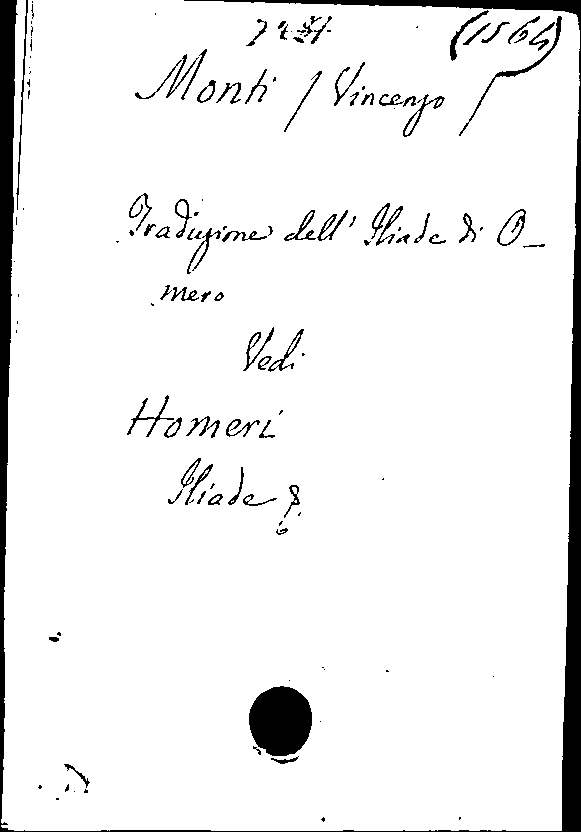 (1564)
Monti / Vincenzo /
Traduzione dell' Iliade di O_
mero
Vedi
Homeri
Iliade &